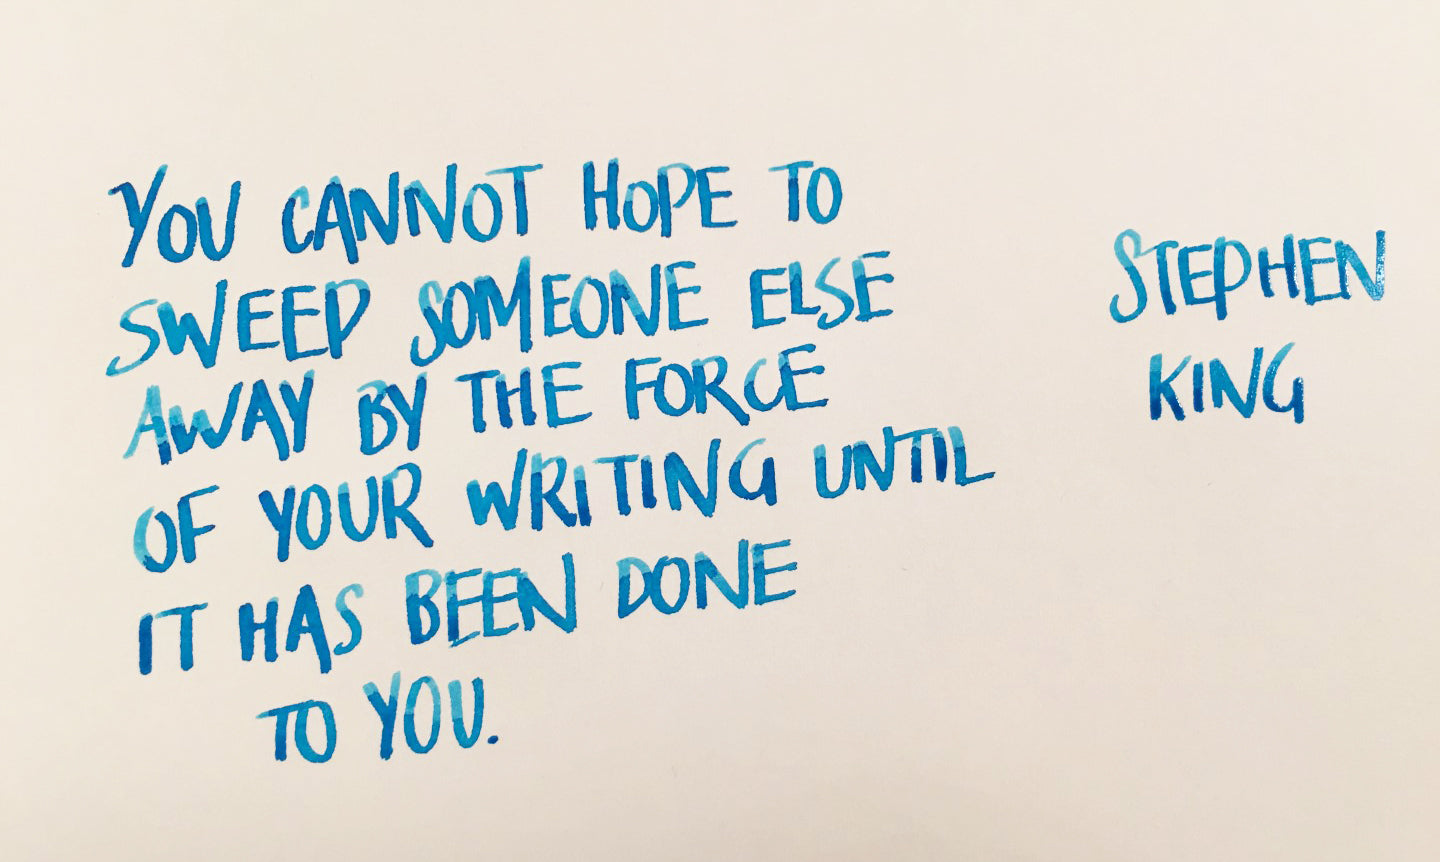 YOU CANNOT HOPE TO
SWEEP SOMEONE ELSE
AWAY BY THE FORCE
OF YOUR WRITING UNTIL
IT HAS BEEN DONE
TO YOU.
STEPHEN
KING